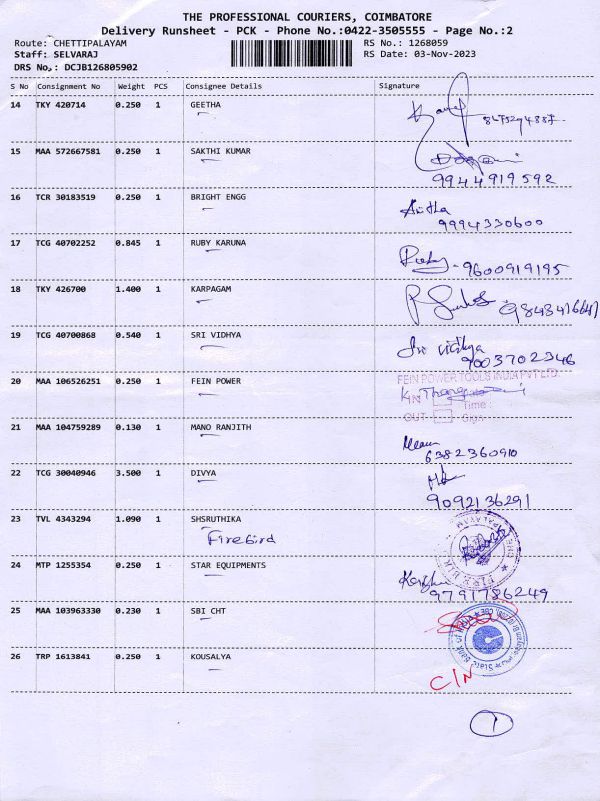 THE PROFESSIONAL COURIERS, COIMBATORE
Delivery Runsheet - PCK - Phone No.:0422-3505555 - Page No.:2
Route: CHETTIPALAYAM RS No.: 1268059
Staff: SELVARAJ RS Date: 03-Nov-2023
DRS No.: DCJB126805902
S No Consignment No Weight PCS Consignee Details Signature
14 TKY 420714 0.250 1 GEETHA
15 MAA 572667581 0.250 1 SAKTHI KUMAR
9944919592
16 TCR 30183519 0.250 1 BRIGHT ENGG
9994330600
17 TCG 40702252 0.845 1 RUBY KARUNA
Ruby - 9600919195
18 TKY 426700 1.400 1 KARPAGAM
19 TCG 40700868 0.540 1 SRI VIDHYA
Sri vidhya
9003702346
20 MAA 106526251 0.250 1 FEIN POWER
FEIN POWER TOOLS INDIA PVT LTD.
IN Time :
OUT Sign
21 MAA 104759289 0.130 1 MANO RANJITH
6382360910
22 TCG 30040946 3.500 1 DIVYA
9092136291
23 TVL 4343294 1.090 1 SHSRUTHIKA
Firebird
24 MTP 1255354 0.250 1 STAR EQUIPMENTS
9791786249
25 MAA 103963330 0.230 1 SBI CHT
State Bank of India
26 TRP 1613841 0.250 1 KOUSALYA
C/N
1